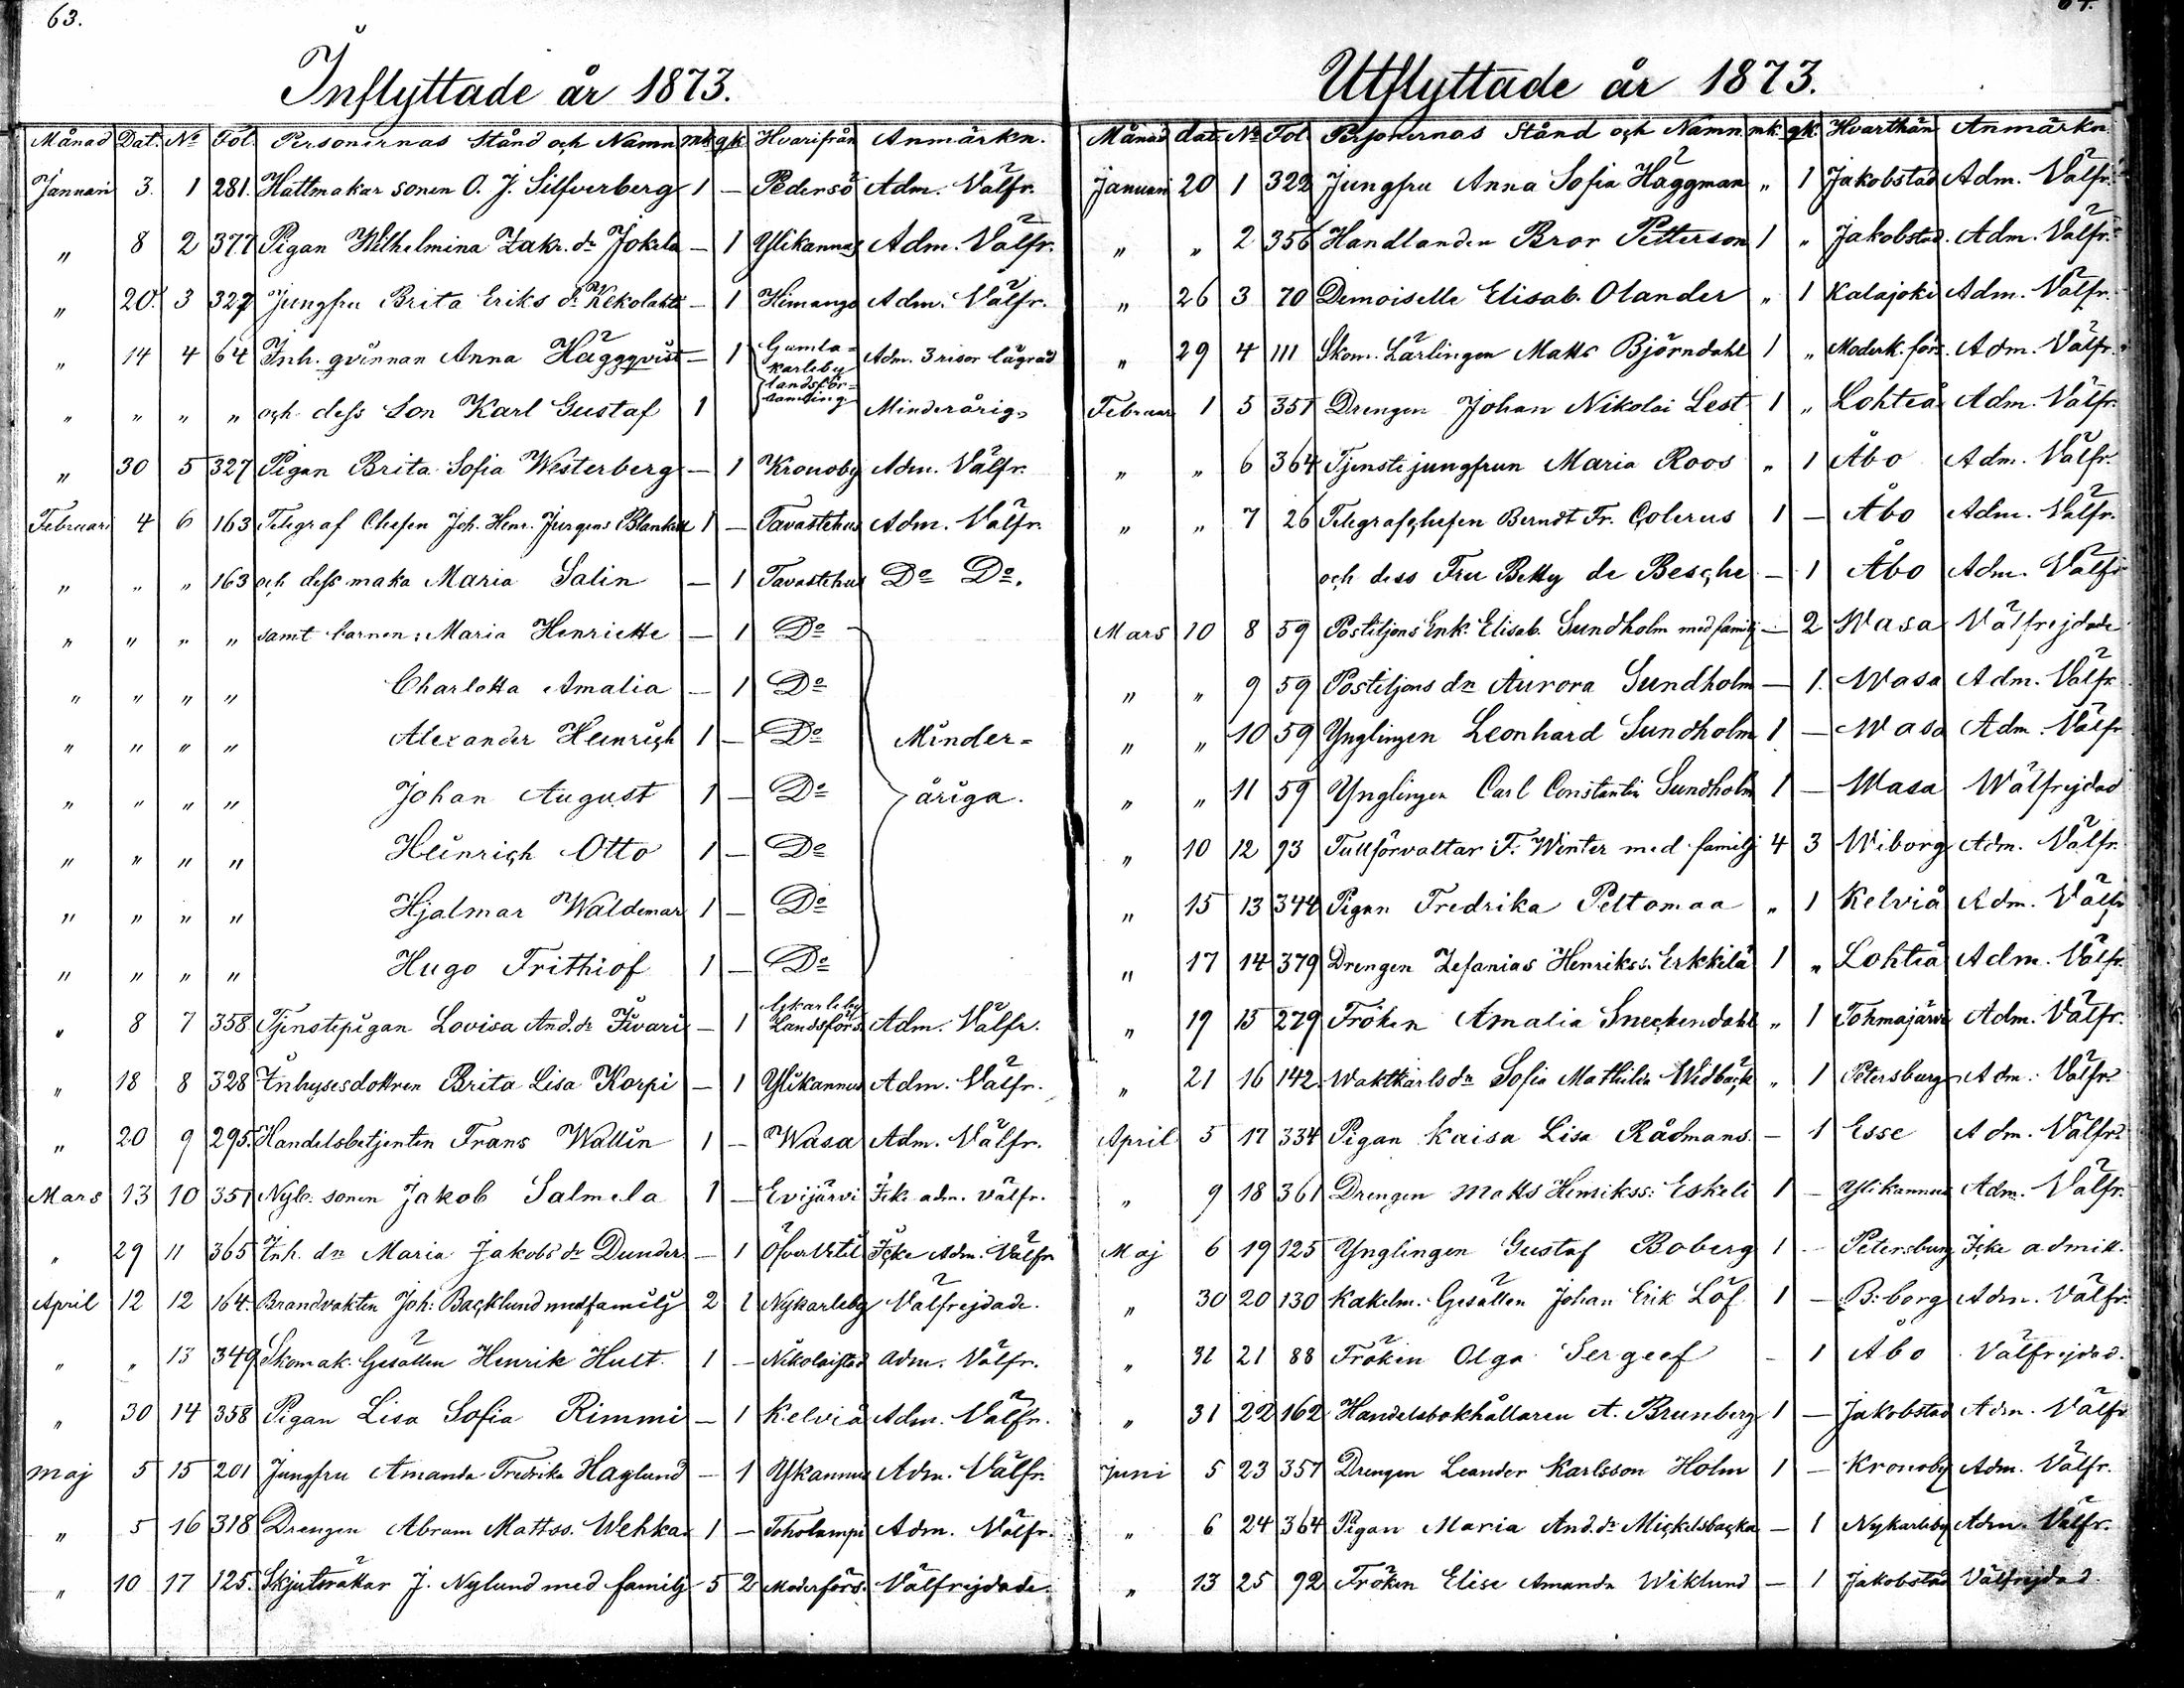 63.
Inflyttade år 1873.
Månad Dat. No Fol. Personernas Stånd och Namn mk. qk. Hvarifrån Anmärkn.
Januari 3. 1 281. Hattmakar sonen O. J. Silfverberg 1 – Pedersö Adm. Välfr.
" 8 2 377 Pigan Wilhelmina Zakr. dr Jokela – 1 Ylikannus Adm. Välfr.
" 20. 3 327 Jungfru Brita Eriks dr Kekolahti – 1 Himango Adm. Välfr.
" 14 4 64 Inh. qvinnan Anna Häggqvist – 1 Gamla=karleby landsför=samling Adm. 3 risor lägrad
" " " " och dess Son Karl Gustaf 1 Minderårig
" 30 5 327 Pigan Brita Sofia Westerberg – 1 Kronoby Adm. Välfr.
Februari 4 6 163 Telegraf Chefen Joh. Henr. Jurgens Blankett 1 – Tavastehus Adm. Välfr.
" " " 163 och dess maka Maria Salin – 1 Tavastehus Do Do.
" " " " samt barnen: Maria Henriette – 1 Do
" " " " Charlotta Amalia – 1 Do
" " " " Alexander Heinrich 1 – Do Minder=
" " " " Johan August 1 – Do åriga.
" " " " Heinrich Otto 1 – Do
" " " " Hjalmar Waldemar 1 – Do
" " " " Hugo Frithiof 1 – Do
" 8 7 358. Tjenstepigan Lovisa And. dr Iivari – 1 Gkarleby Landsförs. Adm. Välfr.
" 18 8 328 Inhysesdottren Brita Lisa Korpi – 1 Ylikannus Adm. Välfr.
" 20 9 295. Handelsbetjenten Frans Wallin 1 – Wasa Adm. Välfr.
Mars 13 10 351 Nyb. sonen Jakob Salmela 1 – Evijärvi Icke adm. välfr.
" 29 11 365 Inh. dn Maria Jakobs dr Dunder – 1 Öfver Vetil Icke Adm. Välfr
April 12 12 164. Brandvakten Joh: Backlund med familj 2 1 Nykarleby Välfrejdade.
" " 13 349 Skomak. Gesällen Henrik Hult. 1 – Nikolaistad adm. Välfr.
" 30 14 358 Pigan Lisa Sofia Rimmi – 1 Kelviå Adm. Välfr.
Maj 5 15 201 Jungfru Amanda Fredrika Haglund – 1 Ykannus Adm. Välfr.
" 5 16 318 Drengen Abram Mattss. Wehka 1 – Toholampi Adm. Välfr.
" 10 17 125. Skjutsrättar J. Nylund med familj 5 2 Moderförs. Välfrejdade.
64.
Utflyttade år 1873.
Månad dat. No Fol. Personernas Stånd och Namn. mk. qk. Hvarthän Anmärkn
Januari 20 1 322 Jungfru Anna Sofia Häggman " 1 Jakobstad Adm. Välfr.
" " 2 356 Handlanden Bror Petterson 1 " Jakobstad. Adm. Välfr.
" 26 3 70 Demoiselle Elisab. Olander " 1 Kalajoki Adm. Välfr.
" 29 4 111 Skom. Lärlingen Matts Björndahl 1 " Moderk. förs. Adm. Välfr.
Februar 1 5 351 Drengen Johan Nikolai Lest 1 " Lohteå Adm. Välfr.
" " 6 364 Tjenstejungfrun Maria Roos " 1 Åbo Adm. Välfr.
" " 7 26 Telegrafchefen Berndt Fr. Colerus 1 – Åbo Adm. Välfr.
och dess Fru Betty de Besche – 1 Åbo Adm. Välfr
Mars 10 8 59 Postiljons Enk. Elisab. Sundholm med familj – 2 Wasa Välfrejdade
" " 9 59 Postiljons dn Aurora Sundholm – 1. Wasa Adm. Välfr.
" " 10 59 Ynglingen Leonhard Sundholm 1 – Wasa Adm. Välfr
" " 11 59 Ynglingen Carl Constantin Sundholm 1 – Wasa Wälfrejdad
" 10 12 93 Tullförvaltar F. Winter med familj 4 3 Wiborg Adm. Välfr.
" 15 13 344 Pigan Fredrika Peltomaa " 1 Kelviå Adm. Välfr
" 17 14 379 Drengen Zefanias Henrikss. Erkkilä 1 " Lohteå Adm. Välfr.
" 19 15 279 Fröken Amalia Sneckendahl " 1 Tohmajärvi Adm. Välfr.
" 21 16 142 Waktkarls dn Sofia Mathilda Widbäck " 1 Petersburg Adm. Välfr.
April 5 17 334 Pigan Kaisa Lisa Rådmans. – 1 Esse Adm. Välfr.
" 9 18 361 Drengen Matts Henrikss: Eskeli 1 – Ylikannus Adm. Välfr.
Maj 6 19 125 Ynglingen Gustaf Boberg 1 – Petersburg Icke admitt.
" 30 20 130 Kakelm. Gesällen Johan Erik Löf 1 – B:borg Adm. Välfr.
" 31 21 88 Fröken Olga Sergeef – 1 Åbo Välfrejdad.
" 31 22 162 Handelsbokhållaren A. Brunberg 1 – Jakobstad Adm. Välfr
Juni 5 23 357 Drengen Leander Karlsson Holm 1 – Kronoby Adm. Välfr.
" 6 24 364 Pigan Maria And. dr Mickelsbacka – 1 Nykarleby Adm. Välfr.
" 13 25 92 Fröken Elise Amanda Wiklund – 1 Jakobstad Välfrejdad.